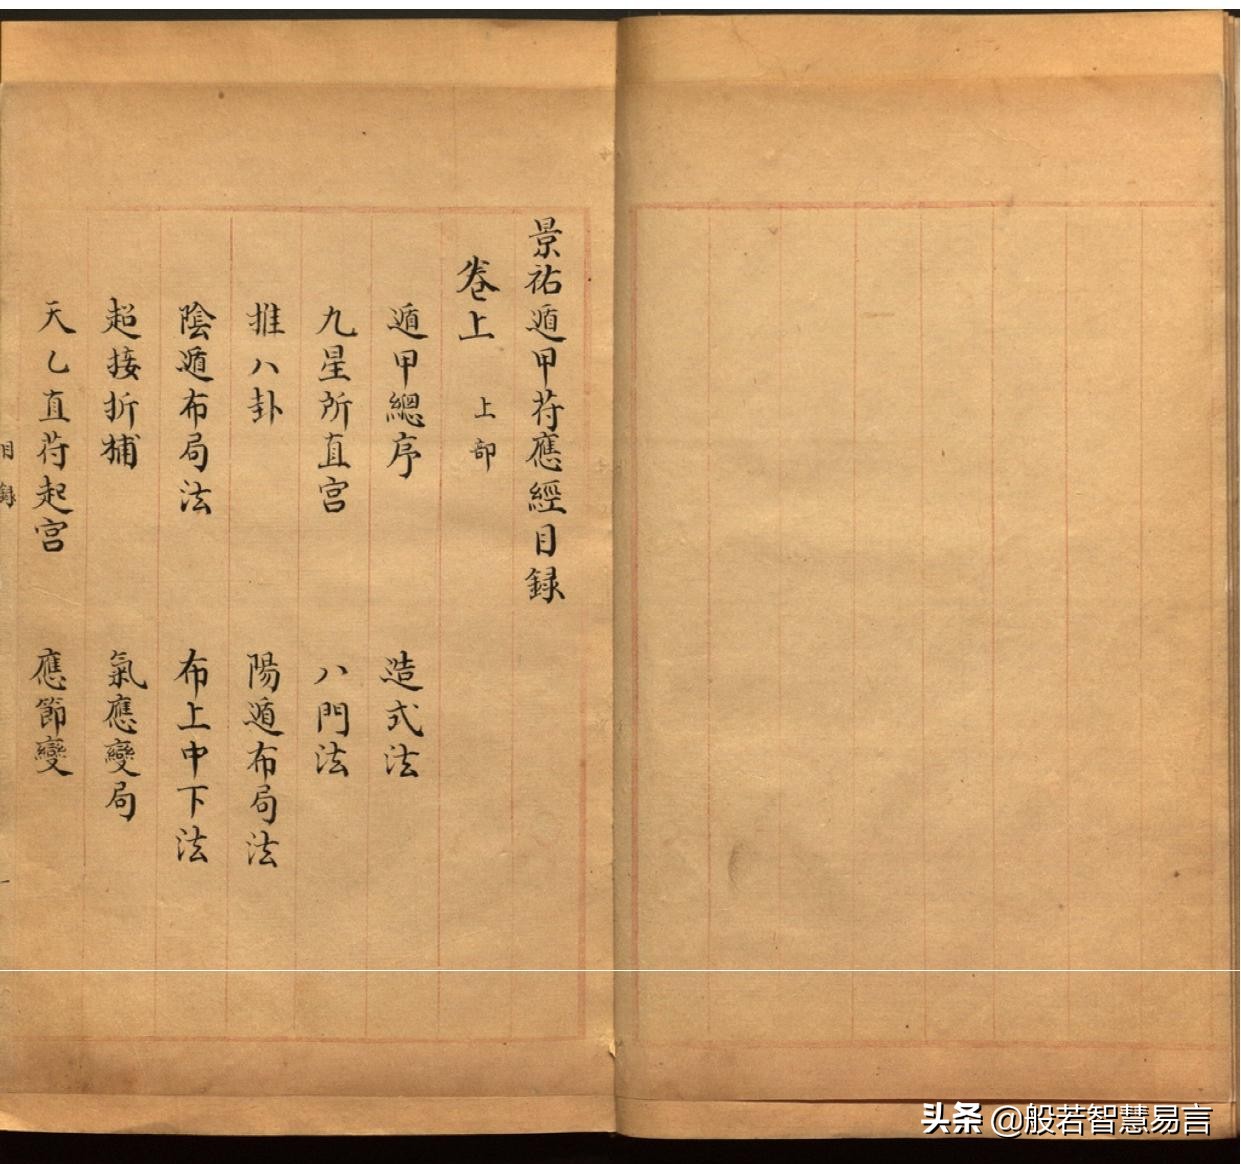 景祐遁甲苻應經目録
卷上 上部
遁甲總序 造式法
九星所直宮 八門法
推八卦 陽遁布局法
陰遁布局法 布上中下法
超接折補 氣應變局
天乙直苻起宮 應節變
目録
头条 @般若智慧易言